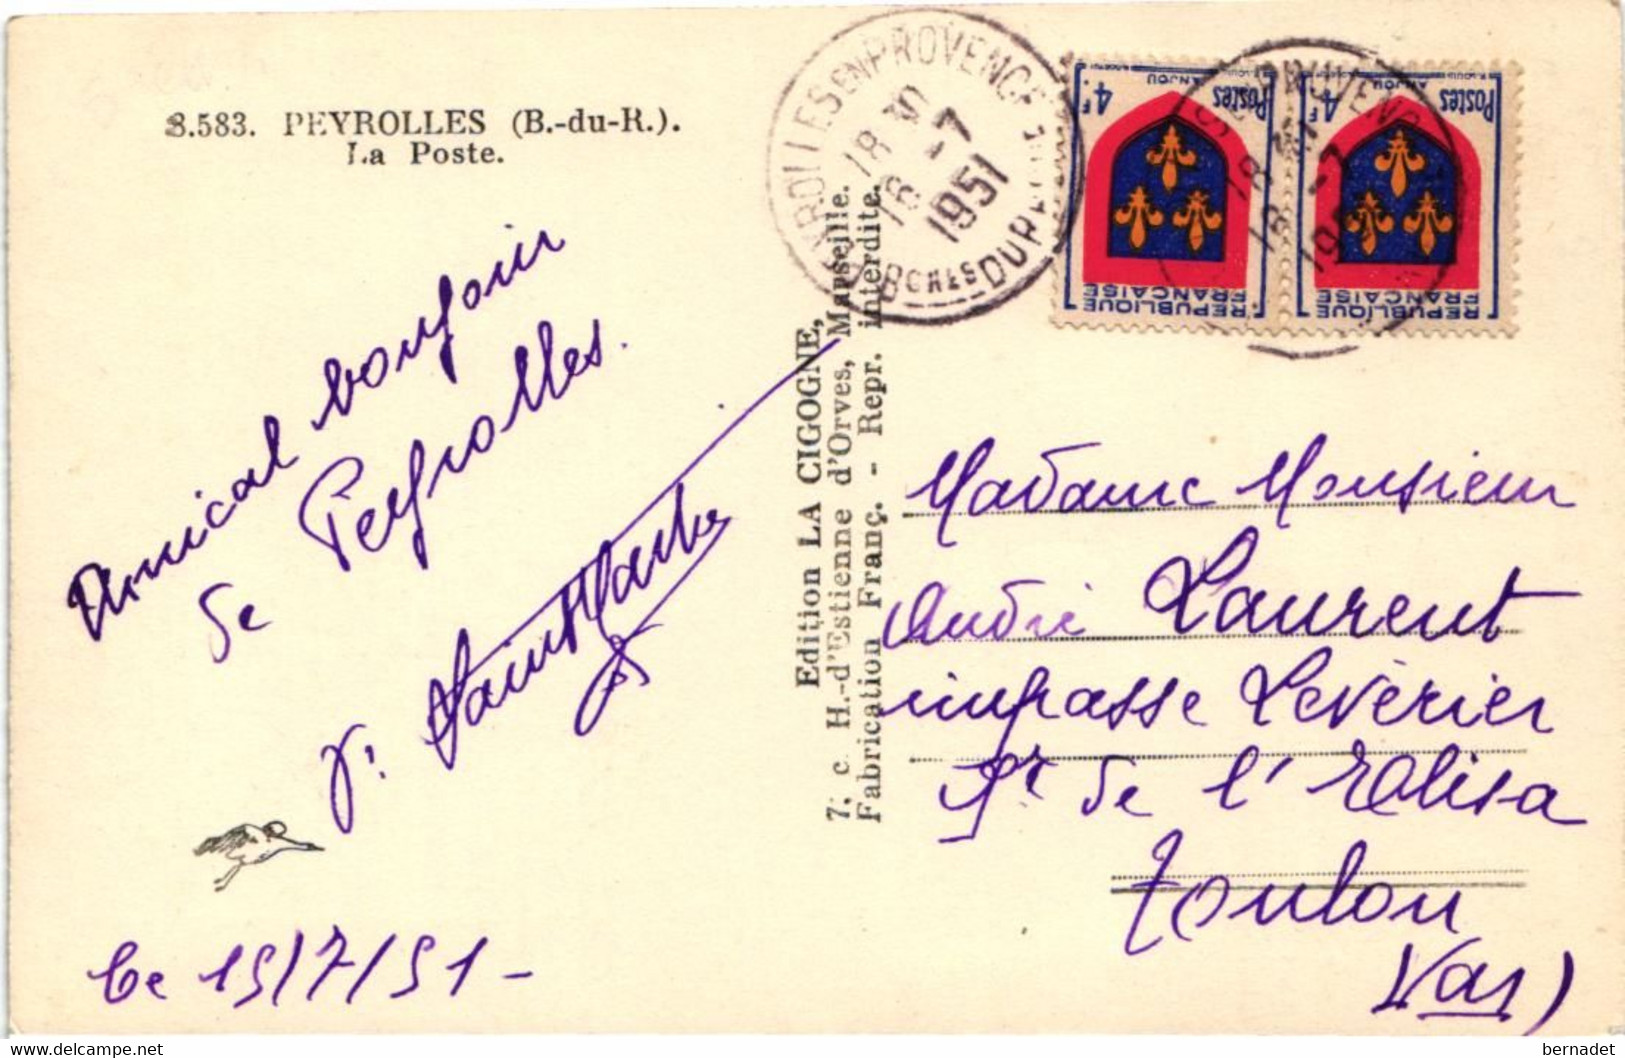 8.583. PEYROLLES (B.-du-R.).
La Poste.
Amical bonjour
de Peyrolles.
Ce 15/7/51 -
Edition LA CIGOGNE,
7, c. H.-d'Estienne d'Orves, Marseille.
Fabrication Franç. - Repr. interdite.
PEYROLLES EN PROVENCE
18 30
16 -7
1951
BCHES DU RHONE
Postes
4F
ANJOU
REPUBLIQUE
FRANÇAISE
Postes
4F
ANJOU
REPUBLIQUE
FRANÇAISE
Madame Monsieur
André Laurent
impasse Levérier
Pt de l'Elisa
Toulon
(Var)
bernadet